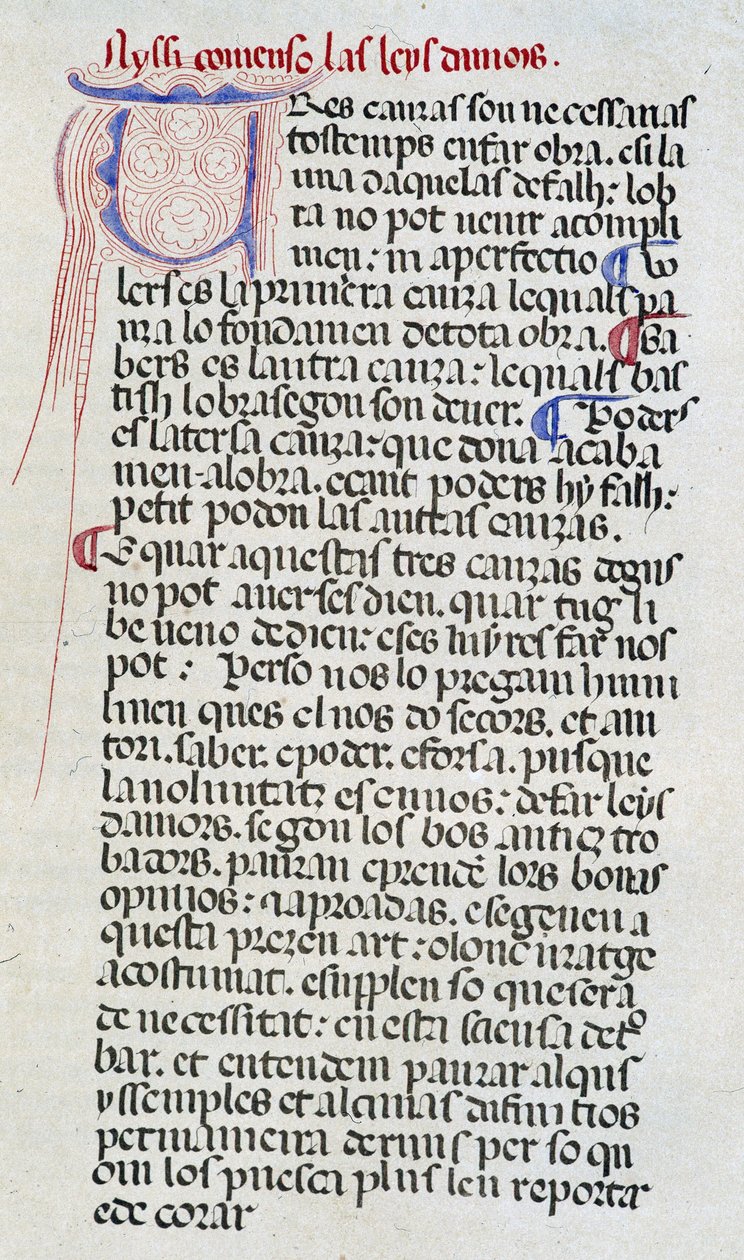 Ayssi comenso las leys damors.
Tres cauzas son necessarias
tostemps en far obra. e si la
una daquelas defalh: lob
ra no pot uenir acompli
men: ni aperfectio ¶ Vo
lers es la primera cauza lequals pa
uza lo fondamen de tota obra. ¶ Sa
bers es lautra cauza: lequals bas
tish lobra segon son deuer. ¶ Poders
es la tersa cauza: que dona acaba
men alobra. e cant poders hy falh:
petit podon las autras cauzas.
¶ E quar aquestas tres cauzas degus
no pot auer ses dieu. quar tug li
be ueno de dieu: e ses luy res far nos
pot: Per so nos lo pregam humi
lmen ques el nos do secors. et aiu
tori. saber. e poder. e forsa. pus que
la uoluntatz es en nos: de far leys
damors. segon los bos anticz tro
badors. pauzan e prenden lors bonas
opinios: e aproadas. e seguen a
questa prezen art: o lonc uzatge
acostumat. e supplen so que sera
de necessitat: en esta sciensa de tro
bar. et entendem pauzar alqus
yssemples et alcunas difinitios
per maneira de rims per so qu
om los puesca plus leu reportar
e decorar